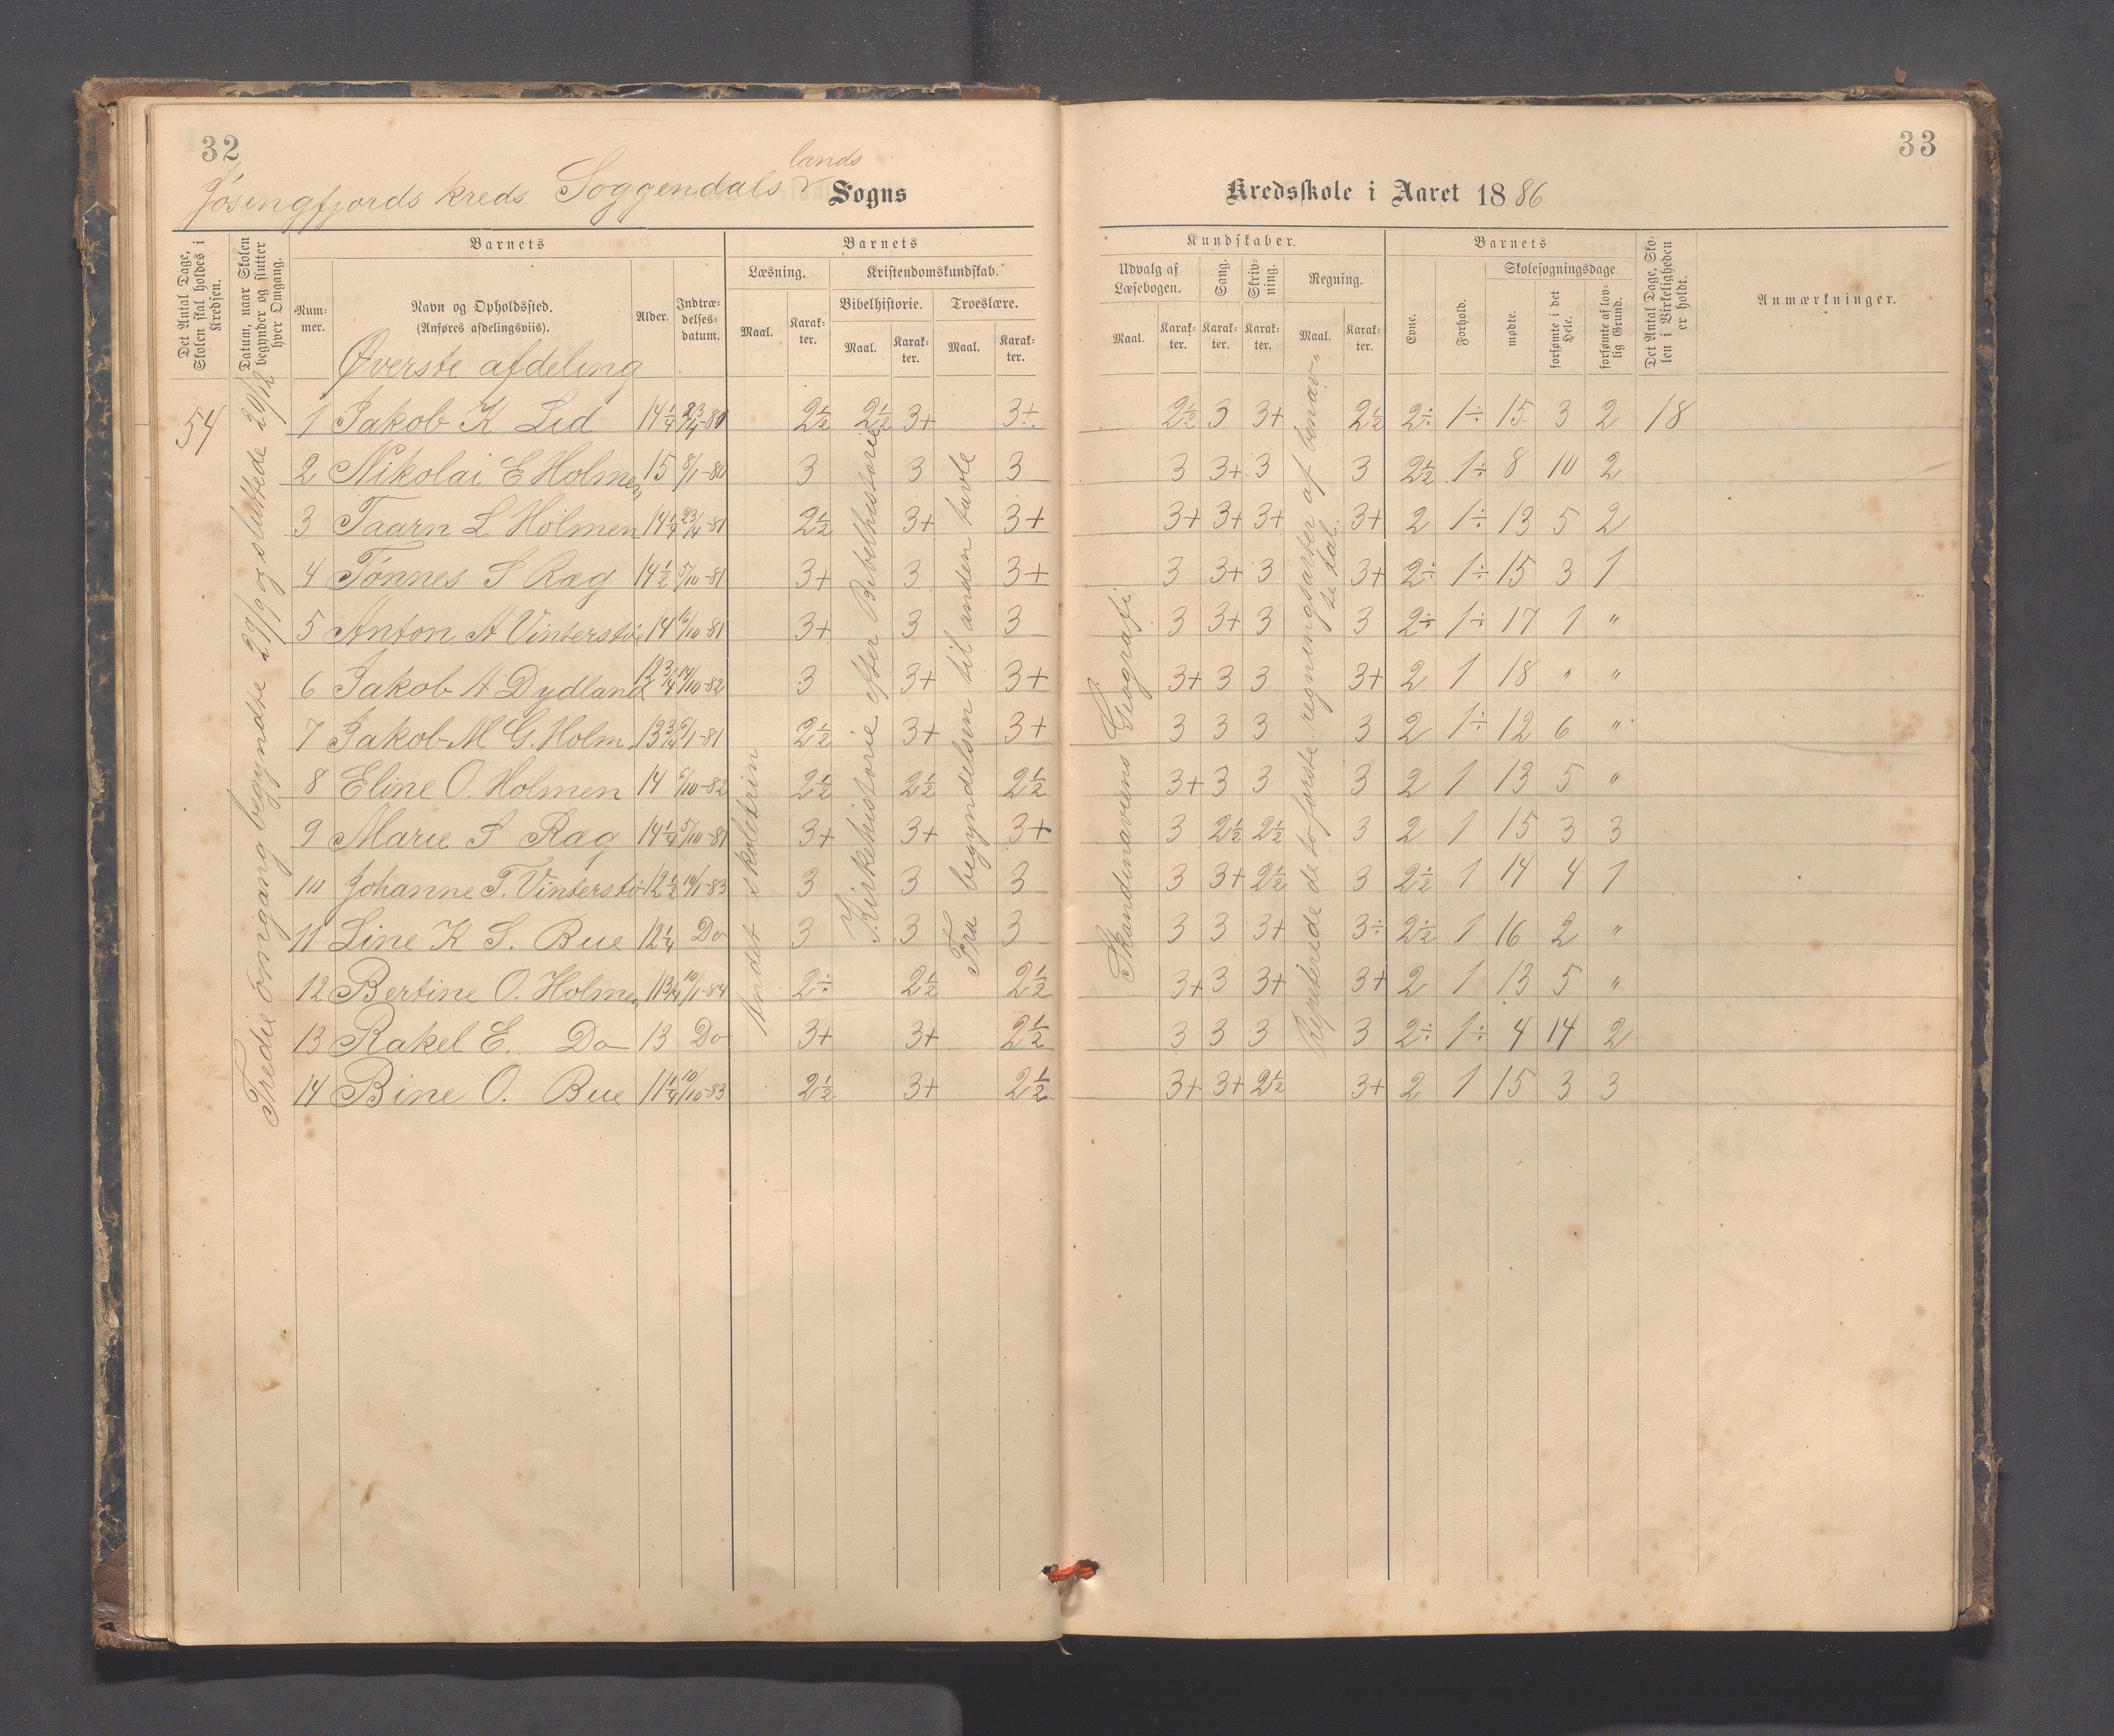 32
33
lands
Jósingfjords kreds Soggendals v Sogns
Kredsskole i Aaret 1886
Det Antal Dage, Skolen skal holdes i Kredsen.
Datum, naar Skolen begynder og slutter hver Omgang.
Barnets
Num-mer.
Navn og Opholdssted. (Anføres afdelingsviis).
Alder.
Indtræ-delses-datum.
Barnets
Læsning.
Maal.
Karak-ter.
Kristendomskundskab.
Bibelhistorie.
Maal.
Karak-ter.
Troeslære.
Maal.
Karak-ter.
Kundskaber.
Udvalg af Læsebogen.
Maal.
Karak-ter.
Sang.
Karak-ter.
Skriv-ning.
Karak-ter.
Regning.
Maal.
Karak-ter.
Barnets
Evne.
Forhold.
Skolesøgningsdage
mødte.
forsømte i det Hele.
forsømte af lov-lig Grund.
Det Antal Dage, Sko-len i Virkeligheden er holdt.
Anmærkninger.
Øverste afdeling
54
Tredie omgang begyndte 29/9 og sluttede 20/12
Andet skoletrin
Kirkehistorie efter Bibelhistorie
Fra begyndelsen til anden tavle
Skandinaviens Geografi
Repeterede de to første regningsarter af benæv-
te tal.
1 Jakob K Lid 14 1/4 23/4-80 2½ 2½ 3+ 3+ 2½ 3 3+ 2½ 2÷ 1÷ 15 3 2 18
2 Nikolai E Holmen 15 8/1-80 3 3 3 3 3+ 3 3 2½ 1÷ 8 10 2
3 Taarn L Holmen 14 1/4 23/4-81 2½ 3+ 3+ 3+ 3+ 3+ 3+ 2 1÷ 13 5 2
4 Tønnes S Ræg 14½ 5/10-81 3+ 3 3+ 3 3+ 3 3+ 2÷ 1÷ 15 3 1
5 Anton A Vinterstø 14 6/10-81 3+ 3 3 3 3+ 3 3 2÷ 1÷ 17 1 "
6 Jakob A Dydland 12 3/4 14/10-82 3 3+ 3+ 3+ 3 3 3+ 2 1 18 " "
7 Jakob M G. Holm 13 3/4 5/1-81 2½ 3+ 3+ 3 3 3 3 2 1÷ 12 6 "
8 Eline O. Holmen 14 6/10-82 2½ 2½ 2½ 3+ 3 3 3 2 1 13 5 "
9 Marie S Ræg 14 1/4 5/10-81 3+ 3+ 3+ 3 2½ 2½ 3 2 1 15 3 3
10 Johanne T. Vinterstø 12½ 14/1-83 3 3 3 3 3+ 2½ 3 2½ 1 14 4 1
11 Line K S. Bue 12 1/4 Do 3 3 3 3 3 3+ 3÷ 2½ 1 16 2 "
12 Bertine O. Holmen 11 3/4 10/1-84 2÷ 2½ 2½ 3+ 3 3+ 3+ 2 1 13 5 "
13 Rakel E. Do 13 Do 3+ 3+ 2½ 3 3 3 3 2÷ 1÷ 4 14 2
14 Bine O. Bue 11 1/4 10/10-83 2½ 3+ 2½ 3+ 3+ 2½ 3+ 2 1 15 3 3